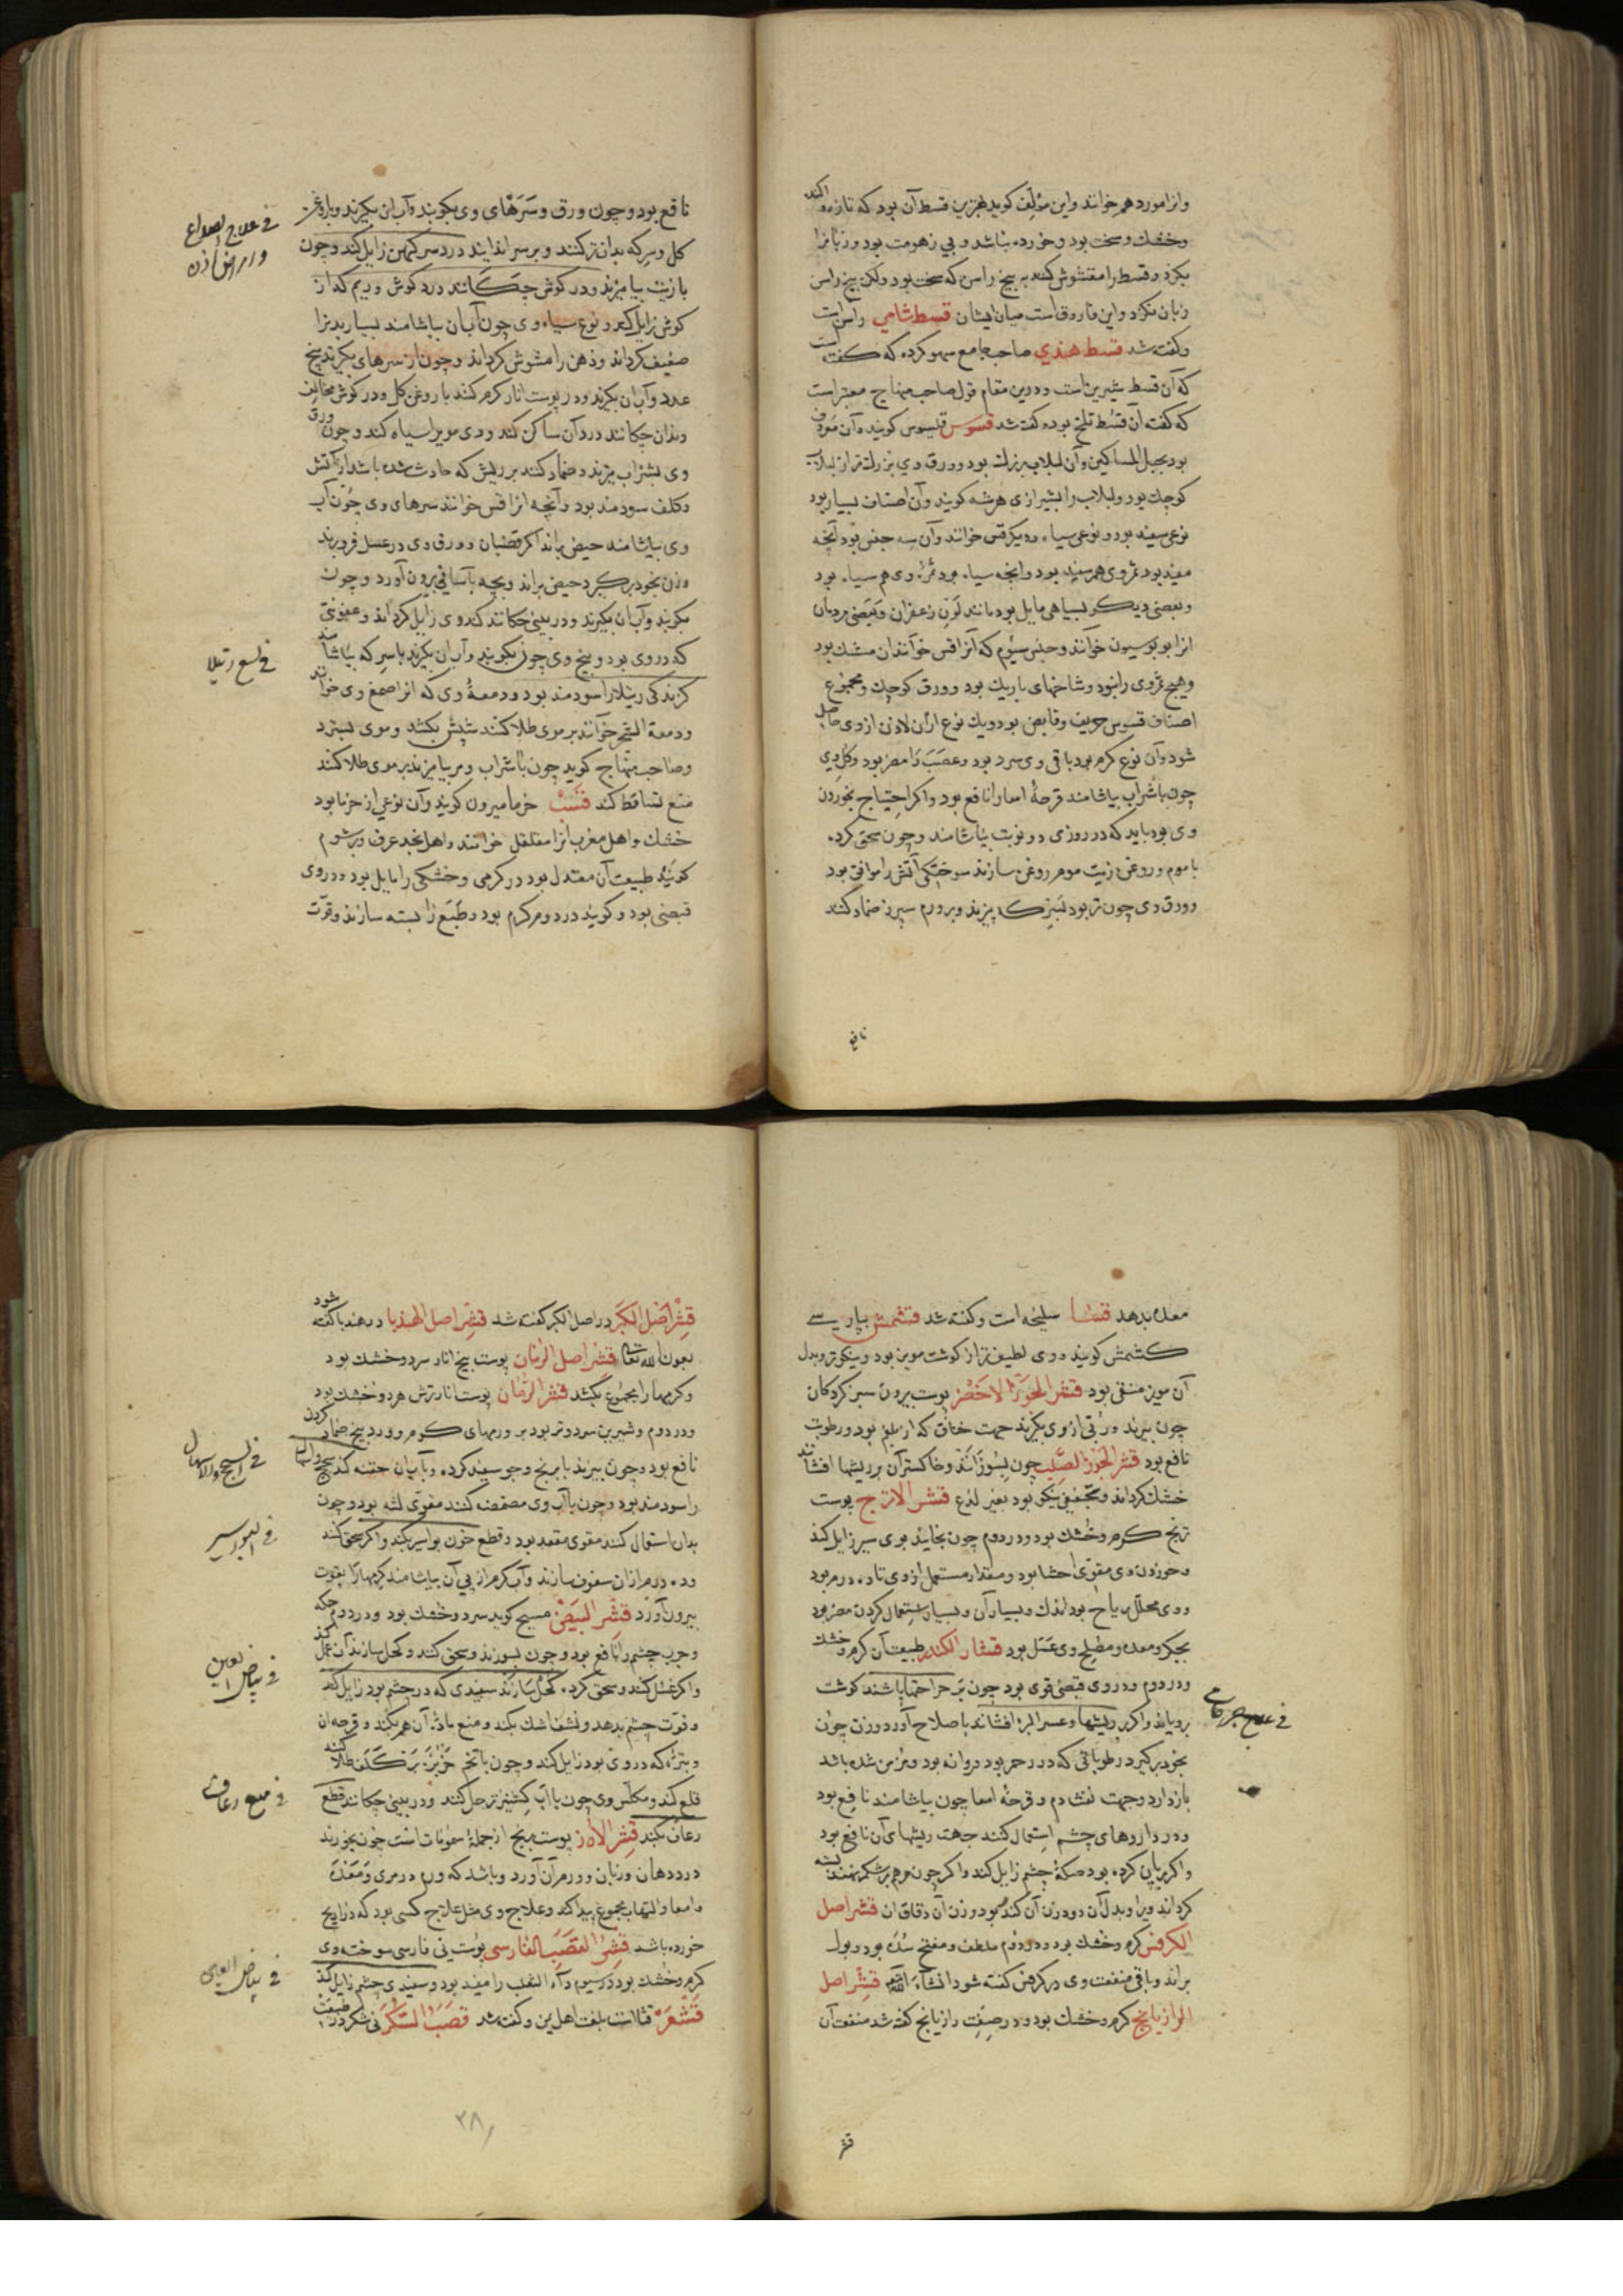 وانرا مورد هم خوانند و این مؤلف کوید بهترین قسط آن بود که تازه و اکنده
و خشك و سخت بود و خورده نباشد و بی زهومت بود و زبانرا
بکزد و قسط را مغشوش کنند به بیخ راسن که سخت بود ولکن بیخ راسن
زبان نکزد و این فاروق است میان ایشان قسط شامی راسن است
و کفته شد قسط هندی صاحب جامع سهو کرده که کفته است
که آن قسط شیرین است و درین مقام قول صاحب منهاج معتبر است
که کفت آن قسط تلخ بود و کفته شد قسوس قلیسوس کویند و آن معروف
بود بحبل المساکین و آن لبلاب بزرك بود و ورق وی بزرك تر از لبلاب
کوچك بود و لبلاب را بشیرازی هرشه کویند و آن اصناف بسیار بود
نوعی سفید بود و نوعی سیاه و دیکر قس خوانند و آن سه جنس بود آنچه
سفید بود ثمر وی هم سفید بود و انچه سیاه بود ثمره وی هم سیاه بود
و بعضی دیکر بسیاهی مایل بود مانند لون زعفران و بعضی مردمان
انرا بوبوسیون خوانند و جنس سیوم که آنرا قس خوانند ان مشبك بود
و هیچ ثمر وی را نبود و شاخهای باریك بود و ورق کوچك و مجموع
اصناف قسوس حریف و قابض بود و یك نوع ازان لادن از وی حاصل
شود و آن نوع کرم بود باقی وی سرد بود و عصب را مضر بود و کل وی
چون باشراب بیاشامند قرحهٔ امعا را نافع بود و اکر احتیاج بخوردن
وی بود باید که در روزی دو نوبت بیاشامند و چون سحق کرده
با موم و روغن زیت موم روغن سازند سوختکی آتش را موافق بود
و ورق وی چون تر بود بسرکه بپزند و بر ورم سپرز ضماد کنند
نافع
نافع بود و چون ورق و سرهای وی بکوبند و آب ان بکیرند و باروغن
کل و سرکه بدان تر کنند و بر سر اندایند درد سر کهن زایل کند و چون
بازیت بیامیزند و در کوش چکانند درد کوش و ریم که از
کوش زایل کند و نوع سیاه وی چون آب ان بیاشامند بسیار بدنرا
ضعیف کرداند و ذهن را مشوش کرداند و چون از سرهای بکیرند پنج
عدد و آب ان بکیرند و در پوست انار کرم کنند با روغن کل و در کوش مخالف
دندان چکانند درد آن ساکن کند و وی مویرا سیاه کند و چون ورق
وی بشراب بپزند و ضماد کنند بر ریش که حادث شده باشد از آتش
و کلف سودمند بود و آنچه انرا قس خوانند سرهای وی چون آب
وی بیاشامند حیض براند اکر قضبان و ورق وی در عسل فروبرند
و زن بخود برکیرد حیض براند و بچه بآسانی بیرون آورد و چون
بکوبند و آب ان بکیرند و در بینی چکانند کندوی زایل کرداند و عفونتی
که در وی بود و بیخ وی چون بکوبند و آب ان بکیرند با سرکه بیاشامند
کزندکی رتیلا را سودمند بود و دمعهٔ وی که انرا صمغ وی خوانند
و دمعة الشجر خوانند بر موی طلا کنند شپش بکشد و موی بسترد
و صاحب منهاج کوید چون باشراب و مر بیامیزند بر موی طلا کنند
منع تساقط کند قسب خرما میرون کویند و آن نوعی از خرما بود
خشك و اهل مغرب انرا مقلقل خوانند و اهل نجد عرف و برشوم
کویند طبیعت آن معتدل بود در کرمی و خشکی را مایل بود و در وی
قبضی بود و کویند در دوم کرم بود و طبع را بسته سازند و قوت
فی علاج الصداع
و امراض اذن
فی لسع رتیلا
معده بدهد قسیا سلیخه است و کفته شد قشمش بپارسی
کشمش کویند و وی لطیف تر از کوشت مویز بود و نیکوتر و بدل
آن مویز منقی بود قشر الجوز الاخضر پوست بیرون سبز کردکان
چون بپزند و ربی از وی بکیرند جهت خناق که از بلغم بود و رطوبت
نافع بود قشر الجوز الصلب چون بسوزانند و خاکستر آن بر ریشها افشانند
خشك کرداند و تجفیفی نیکو بود بغیر لذع قشر الاترج پوست
ترنج کرم و خشك بود در دوم چون بخایند بوی سیر زایل کند
و خوردن وی مقوی احشا بود و مقدار مستعمل از وی تا ده درم بود
و وی محلل ریاح بود اندك و بسیار آن و بسیار استعمال کردن مضر بود
بجکر و معده و مصلح وی عسل بود قشار الکندر طبیعت آن کرم و خشك
در دوم و در وی قبضی قوی بود چون بر جراحتها پاشند کوشت
برویاند و اکر بر ریشها و عسر البرء افشانند باصلاح آورد و زن چون
بخود برکیرد رطوباتی که در رحم بود و روانه بود و مزمن شده باشد
بازدارد و جهت نفث دم و قرحهٔ امعا چون بیاشامند نافع بود
و در داروهای چشم استعمال کنند جهت ریشهای آن نافع بود
و اکر بریان کرده بود حکهٔ چشم زایل کند و اکر چون مرهم بر شکم نهند بسته
کرداند ویرا و بدل آن دو وزن آن کندر بود و وزن آن دقاق ان قشر اصل
الکرفس کرم و خشك بود در دوم ملطف و مفتح سدد بود و بول
براند و باقی منفعت وی در کرفس کفته شود انشاء الله قشر اصل
الرازیانج کرم و خشك بود و در صفت رازیانج کفته شد منفعت آن
قشر
فی علاج جراحات
قشر اصل الکبر در اصل الکبر کفته شد قشر اصل الهندبا در هندبا کفته شود
بعون الله تعالی قشر اصل الرمان پوست بیخ انار سرد و خشك بود
و کرمها را مجموع بکشد قشر الرمان پوست انار ترش سرد و خشك بود
در دوم و شیرین سرد و تر بود بر ورمهای کرم و درد بیخ ضماد کردن
نافع بود و چون بپزند با برنج و جو سفید کرده و با آب ان حقنه کنند سحج و اسهال
را سودمند بود و چون با آب وی مضمضه کنند مقوی لثه بود و چون
بدان استعمال کنند مقوی مقعد بود و قطع خون بواسیر بکند و اکر سحق کنند
و ده درم ازان سفوف سازند و آب کرم از پی آن بیاشامند کرمها را بقوت
بیرون آورد قشر البیض مسیح کوید سرد و خشك بود در دوم حکه
و جرب چشم را نافع بود و چون بسوزند و سحق کنند و کحل سازند آن عمل کند
و اکر غسل کنند و سحق کرده کحل سازند سفیدی که در چشم بود زایل کند
و قوت چشم بدهد و نشف اشك بکند و منع مادهٔ آن هم بکند و قرحهٔ ان
و بثره که در وی بود زایل کند و چون باتخم خربزه بر کلف طلا کنند
قلع کند و مکلس وی چون با آب کشنیز تر حل کنند و در بینی چکانند قطع
رعاف بکند قشر الارز پوست برنج از جملهٔ سمومات است چون بخورند
درد دهان و زبان و ورم آن آورد و باشد که ورم در مری و معده
و امعا و التهاب مجموع پیدا کند و علاج وی مثل علاج کسی بود که ذراریح
خورده باشد قشر القصب الفارسی پوست نی فارسی سوخته وی
کرم و خشك بود در سیوم داء الثعلب را مفید بود و سفیدی چشم زایل کند
قشعر قثا است بلغت اهل یمن و کفته شد قصب السکر نی شکر در طبیعت
فی السحج و الاسهال
فی البواسیر
فی بیاض العین
فی منع رعاف
فی بیاض العین
۳۸